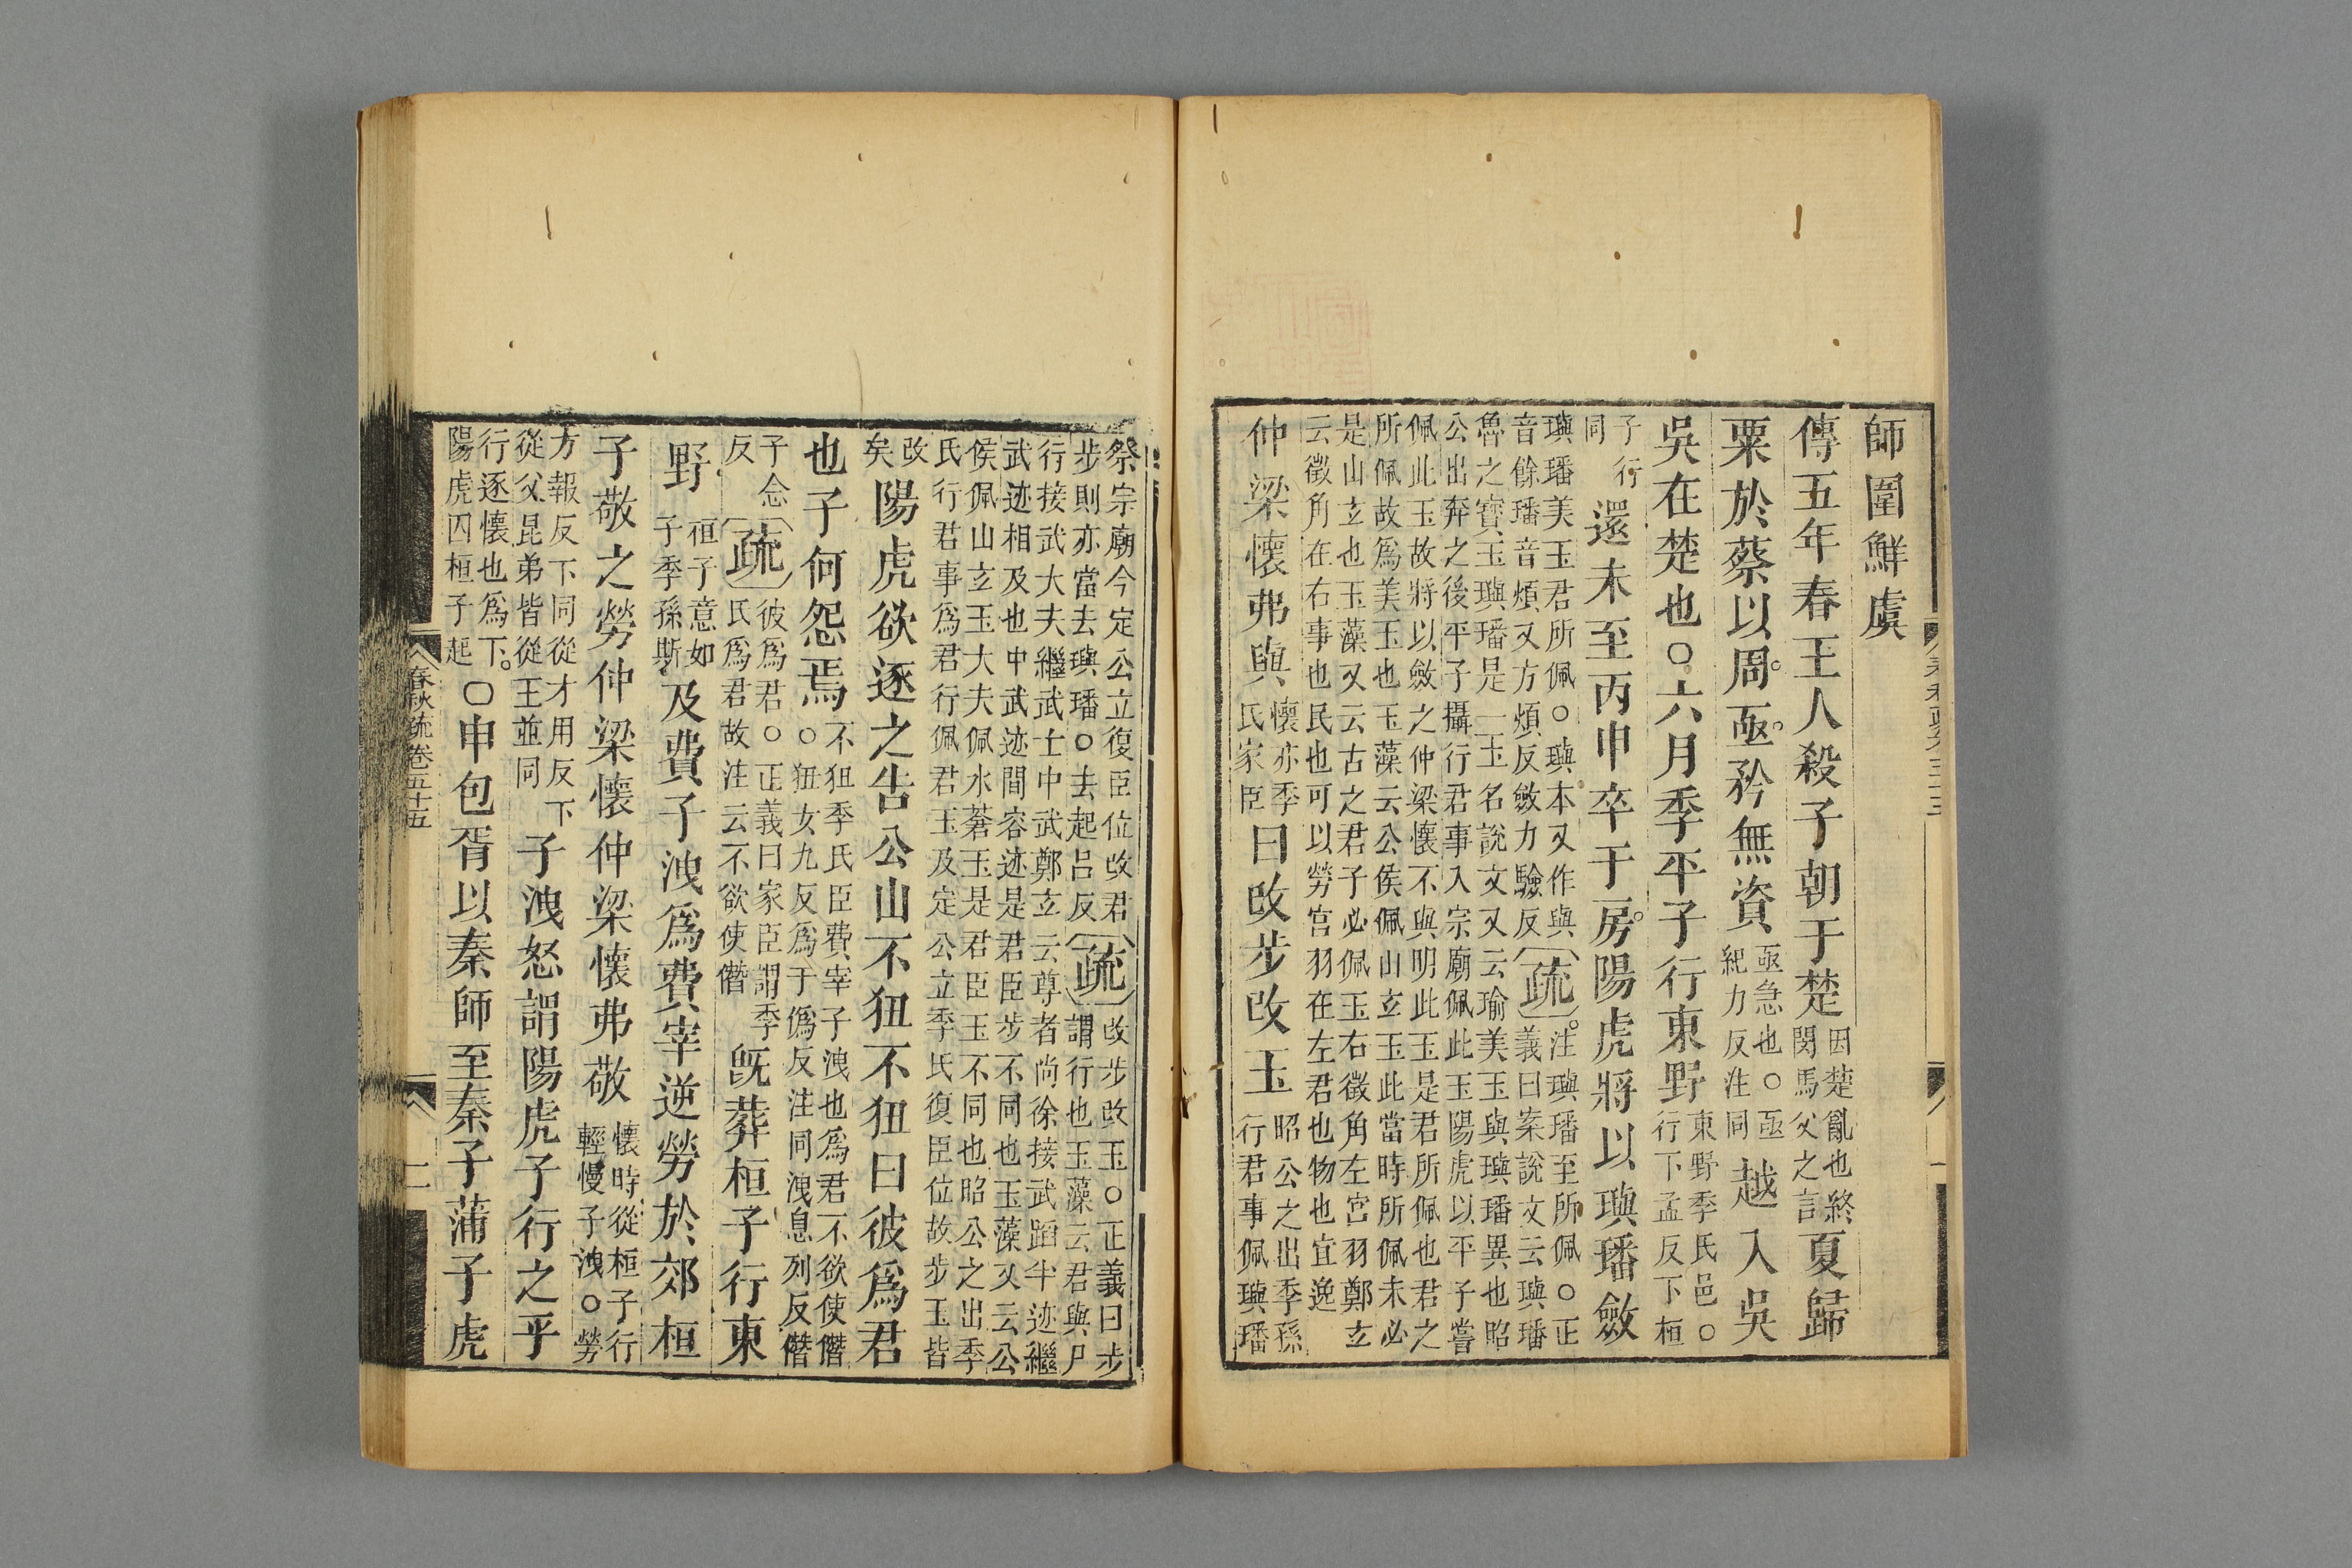 師圍鮮虞
傳五年春王人殺子朝于楚因楚亂也終閔馬父之言夏歸
粟於蔡以周亟矜無資亟急也○亟紀力反注同越入吳
吳在楚也○六月季平子行東野東野季氏邑○行下孟反下桓
子行同還未至丙申卒于房陽虎將以璵璠斂
璵璠美玉君所佩○璵本又作與音餘璠音煩又方煩反斂力驗反疏注璵璠至所佩○正義曰案說文云璵璠
魯之寶玉璵璠是一玉名說文又云瑜美玉與璵璠異也昭
公出奔之後平子攝行君事入宗廟佩此玉陽虎以平子嘗
佩此玉故將以斂之仲梁懷不與明此玉是君所佩也君之
所佩故爲美玉也玉藻云公侯佩山玄玉此當時所佩未必
是山玄也玉藻又云古之君子必佩玉右徵角左宮羽鄭玄
云徵角在右事也民也可以勞宮羽在左君也物也宜逸
仲梁懷弗與懷亦季氏家臣曰改步改玉昭公之出季孫行君事佩璵璠
祭宗廟今定公立復臣位改君步則亦當去璵璠○去起呂反疏改步改玉○正義曰步謂行也玉藻云君與尸
行接武大夫繼武士中武鄭玄云尊者尚徐接武蹈半迹繼
武迹相及也中武迹間容迹是君臣步不同也玉藻又云公
侯佩山玄玉大夫佩水蒼玉是君臣玉不同也昭公之出季
氏行君事爲君行佩君玉及定公立季氏復臣位故步玉皆
改矣陽虎欲逐之告公山不狃不狃曰彼爲君
也子何怨焉不狃季氏臣費宰子洩也爲君不欲使僭○狃女九反爲于僞反注同洩息列反僭
子念反疏彼爲君○正義曰家臣謂季氏爲君故注云不欲使僭既葬桓子行東
野桓子意如子季孫斯及費子洩爲費宰逆勞於郊桓
子敬之勞仲梁懷仲梁懷弗敬懷時從桓子行輕慢子洩○勞
方報反下同從才用反下從父昆弟皆從王並同子洩怒謂陽虎子行之乎
行逐懷也爲下陽虎囚桓子起○申包胥以秦師至秦子蒲子虎
春秋疏卷五十五
二